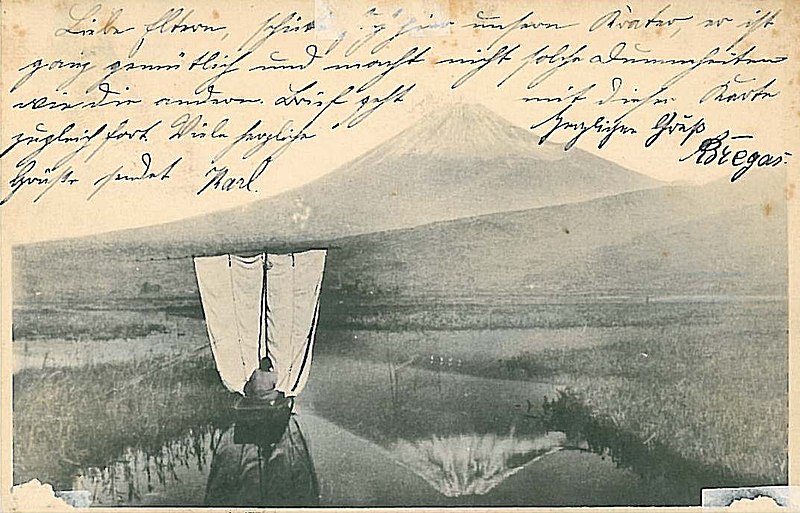 Liebe Eltern, hier unsern Krater, er ist
ganz gemütlich und macht nicht solche Dummheiten
wie die andern. Brief geht mit dieser Karte
zugleich fort. Viele herzliche
Grüße sendet Karl.
Herzlichen Gruß
Bregas.